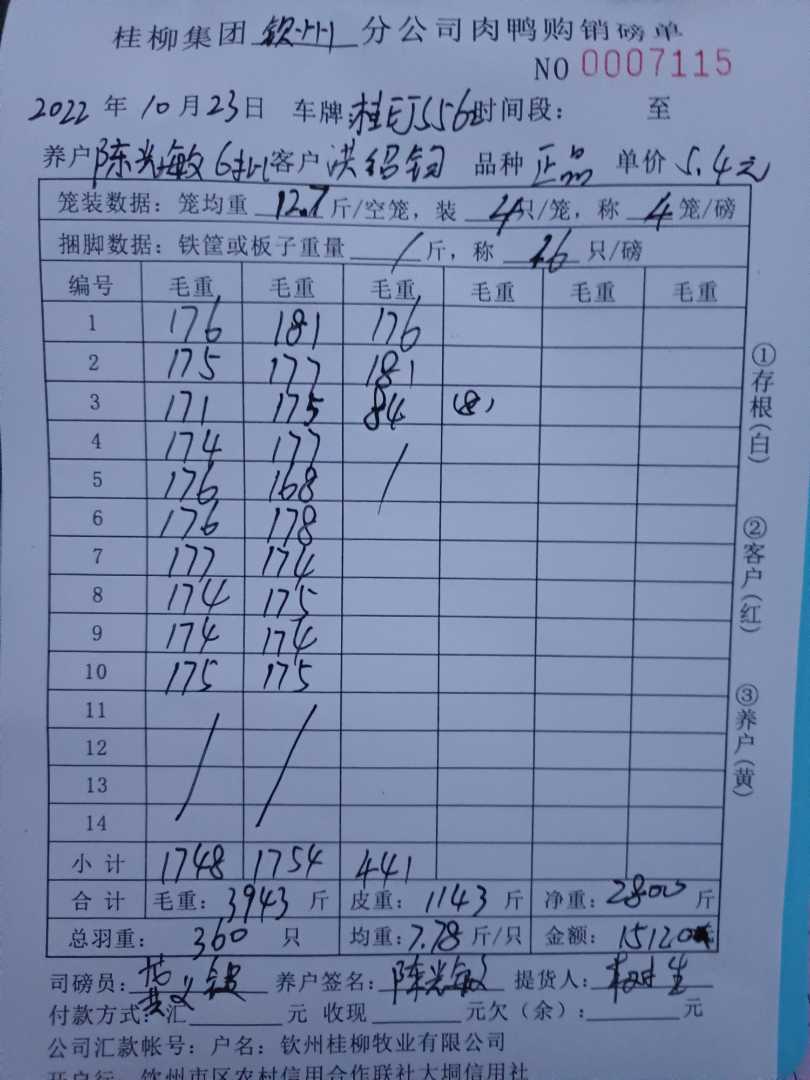 桂柳集团 钦州 分公司肉鸭购销磅单
NO 0007115
2022 年 10 月 23 日 车牌: 时间段: 至
养户 陈光敏 6批 客户 洪绍钊 品种 正品 单价 5.4元
笼装数据: 笼均重 12.7 斤/空笼, 装 4 只/笼, 称 4 笼/磅
捆脚数据: 铁筐或板子重量 / 斤, 称 16 只/磅
编号 毛重 毛重 毛重 毛重 毛重 毛重
1 176 181 176
2 175 177 181
3 171 175 84 (8)
4 174 177 /
5 176 168
6 176 178
7 177 174
8 174 175
9 174 174
10 175 175
11 / /
12
13
14
小计 1748 1754 441
合计 毛重: 3943 斤 皮重: 1143 斤 净重: 2800 斤
总羽重: 360 只 均重: 7.78 斤/只 金额: 15120元
司磅员: 养户签名: 陈光敏 提货人:
付款方式: 汇 元 收现 元欠(余): 元
公司汇款帐号: 户名: 钦州桂柳牧业有限公司
开户行: 钦州市区农村信用合作联社大垌信用社
①存根(白)
②客户(红)
③养户(黄)